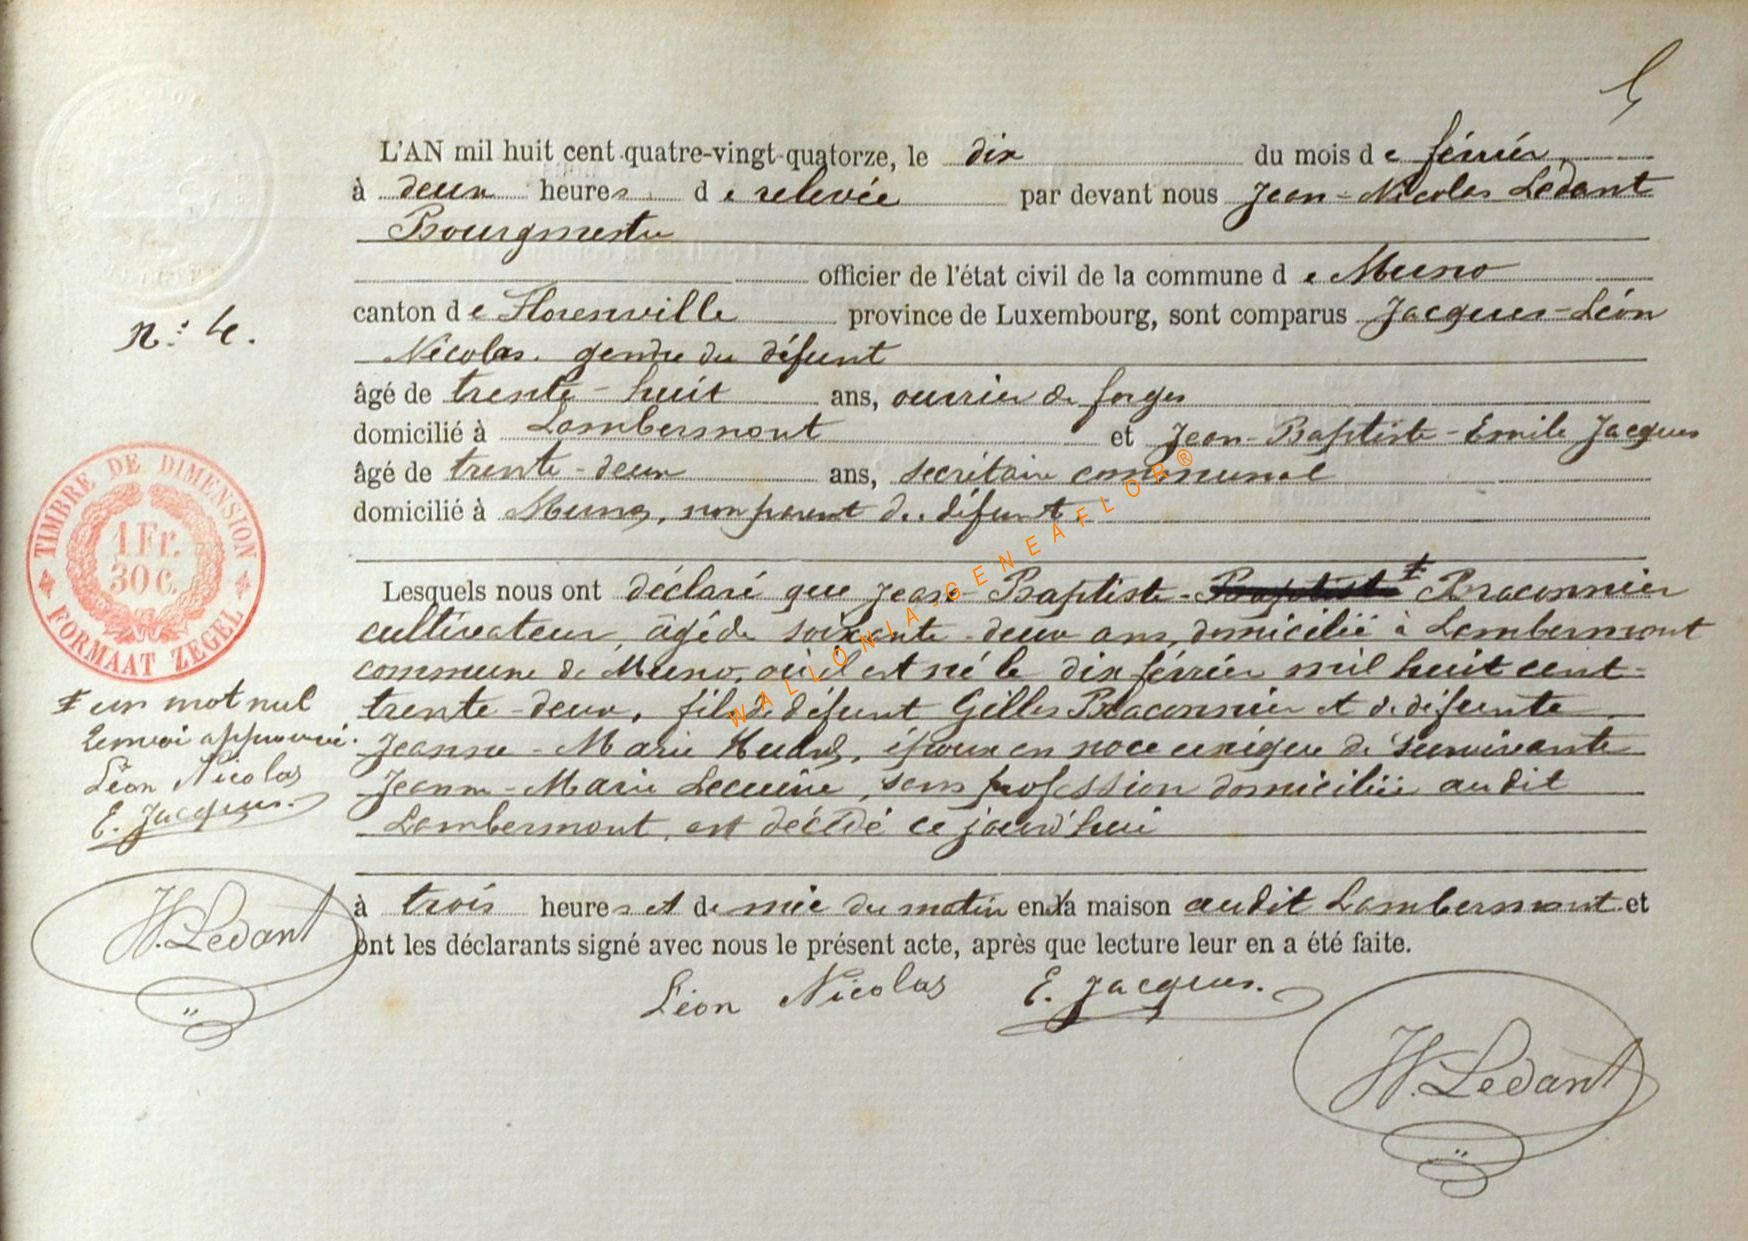 L'AN mil huit cent quatre-vingt-quatorze, le dix du mois de février,
à deux heures de relevée par devant nous Jean-Nicolas Ledant
Bourgmestre
officier de l'état civil de la commune de Muno
canton de Florenville province de Luxembourg, sont comparus Jacques-Léon
Nicolas gendre du défunt
âgé de trente-huit ans, ouvrier de forges
domicilié à Lambermont et Jean-Baptiste-Emile Jacques
âgé de trente-deux ans, secrétaire communal
domicilié à Muno, non parent du défunt.
Lesquels nous ont déclaré que Jean-Baptiste- Braconnier
cultivateur, âgé de soixante-deux ans, domicilié à Lambermont
commune de Muno, où il est né le dix février mil huit cent-
trente-deux, fils de défunt Gilles Braconnier et de défunte
Jeanne-Marie, époux en noce unique de survivante
Jeanne-Marie, sans profession domiciliée au dit
Lambermont, est décédé ce jourd'hui
à trois heures et demie du matin en la maison audit Lambermont et
ont les déclarants signé avec nous le présent acte, après que lecture leur en a été faite.
Léon Nicolas E. Jacques.
Ledant
N.° 4.
TIMBRE DE DIMENSION
1 Fr.
30 C.
FORMAAT ZEGEL
‡ un mot nul
Renvoi approuvé.
Léon Nicolas
E. Jacques.
Ledant
WALLONIA-GENEAFLOR®